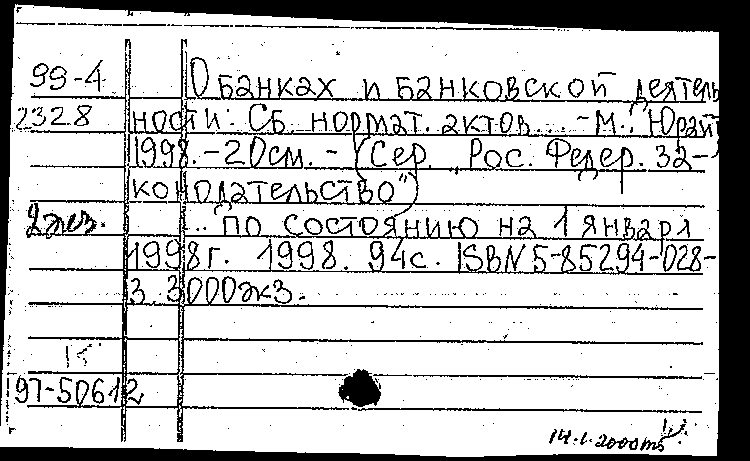 99-4 О банках и банковской деятель
2328 ности: Сб. нормат. актов... - М.: Юрайт
1998. - 20см. - (Сер. "Рос. Федер. за-
конодательство")
2экз. ... по состоянию на 1 января
1998г. 1998. 94с. ISBN 5-85294-028-
3. 3000экз.
К
97-50612
14.1.2000